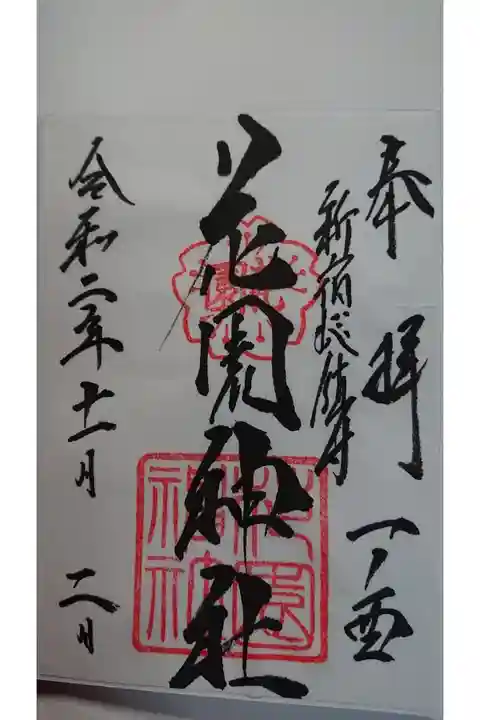 奉拝 一ノ酉
新宿総鎮守
花園神社
花園神社
令和二年十一月 二日